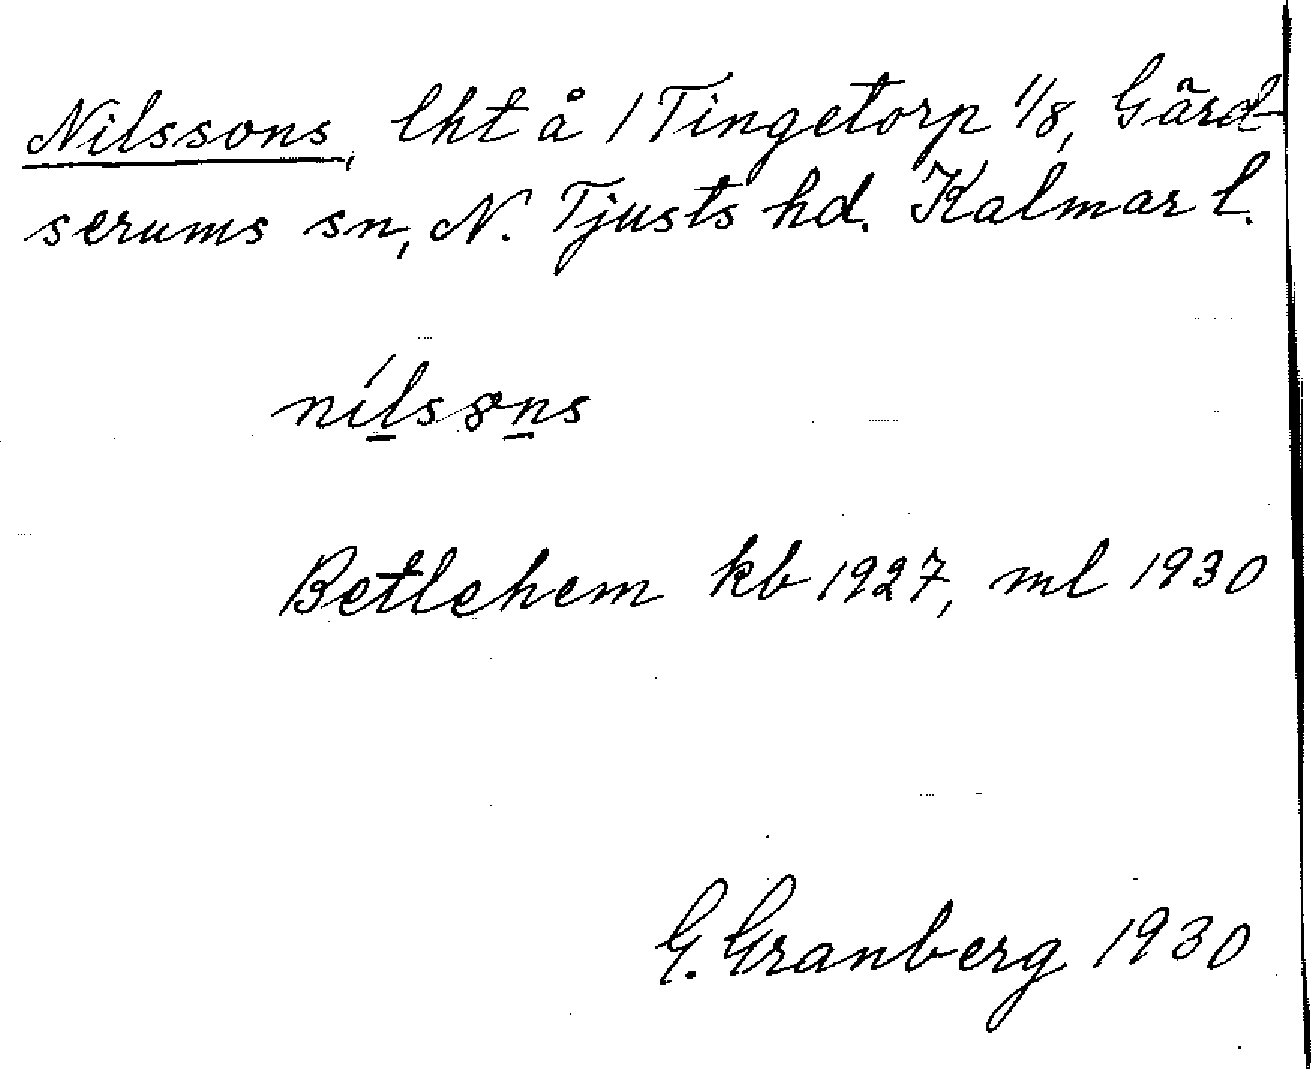 Nilssons, lht å 1 Tingetorp 1/8, Gärd-
serums sn, N. Tjusts hd. Kalmar l.
nílssons
Betlehem kb 1927, ml 1930
G. Granberg 1930